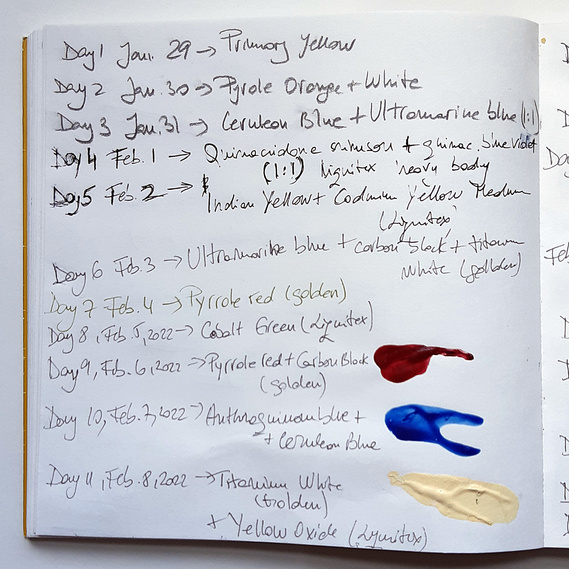 Day 1 Jan. 29 → Primary Yellow
Day 2 Jan. 30 → Pyrole Orange + White
Day 3 Jan. 31 → Ceruleon Blue + Ultramarine blue (1:1)
Day 4 Feb. 1 → Quinacidone crimson + quinac. blue violet
(1:1) liquitex heavy body
Day 5 Feb. 2 →
Indian Yellow + Cadmium Yellow Medium
(Liquitex)
Day 6 Feb. 3 → Ultramarine blue + carbon black + titanium
White (golden)
Day 7 Feb. 4 → Pyrrole red (golden)
Day 8, Feb. 5, 2022 → Cobalt Green (Liquitex)
Day 9, Feb. 6, 2022 → Pyrrole red + Carbon Black
(golden)
Day 10, Feb. 7, 2022 → Anthraquinon blue +
+ Ceruleon Blue
Day 11, Feb. 8, 2022 → Titanium White
(Golden)
+ Yellow Oxide (Liquitex)